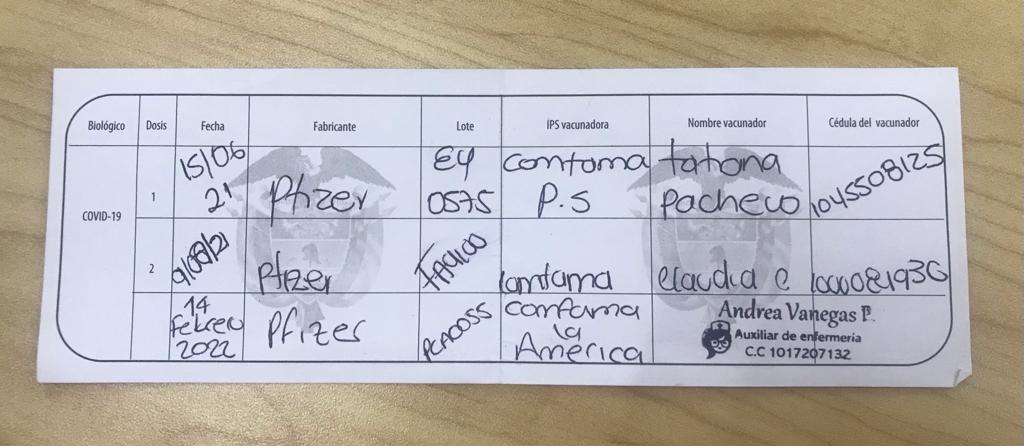 Biológico Dosis Fecha Fabricante Lote IPS vacunadora Nombre vacunador Cédula del vacunador
COVID-19
1 15/06 21 Pfizer EY 0575 Comfama P.S tatiana Pacheco 1045508125
2 9/08/21 Pfizer FA9100 Comfama claudia c
14 Febrero 2022 Pfizer PCA0055 Comfama la América Andrea Vanegas P.
Auxiliar de enfermeria
C.C 1017207132